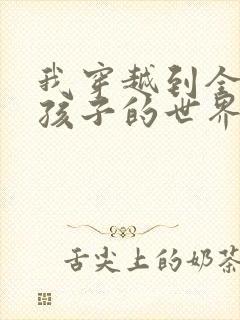 我穿越到全
孩子的世界
舌尖上的奶茶